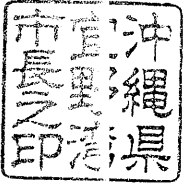 沖縄県
宜野湾
市長之印